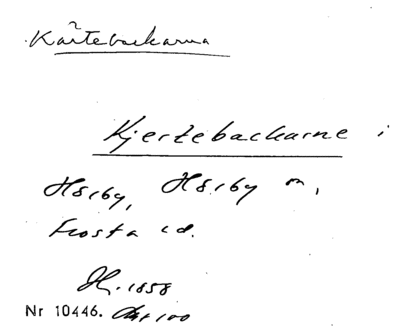 Kärtebackarna
Kjertebackarne i
Hörby, Hörby sn,
Frosta hd.
1858
Nr 10446.